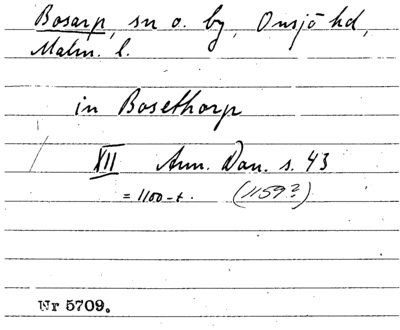 Bosarp, sn o. by, Onsjö hd,
Malm. l.
in Bosethorp
XII Ann. Dan. s. 43
= 1100-t. (1159?)
Nr 5709.